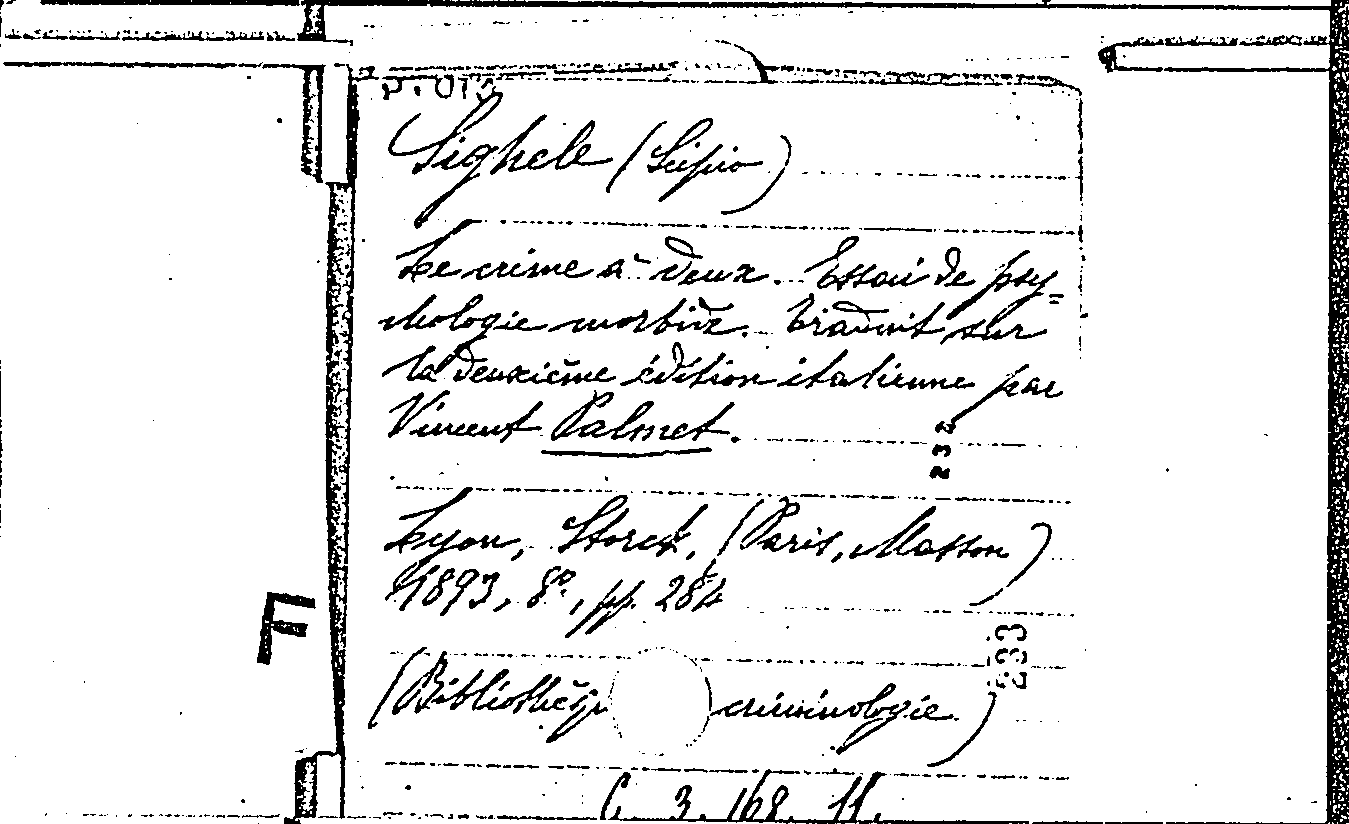 Sighele (Scipio)
Le crime à deux. Essai de psy=
chologie morbide. Traduit sur
la deuxième édition italienne par
Vincent Palmet.
232
Lyon, Storck, (Paris, Masson)
1893, 8°, pp. 284
233
F
(Bibliothèq criminologie)
C. 3. 168. 11.